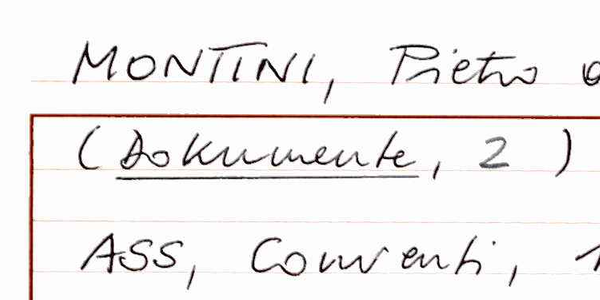 MONTINI, Pietro
(Dokumente, 2 )
ASS, Conventi,